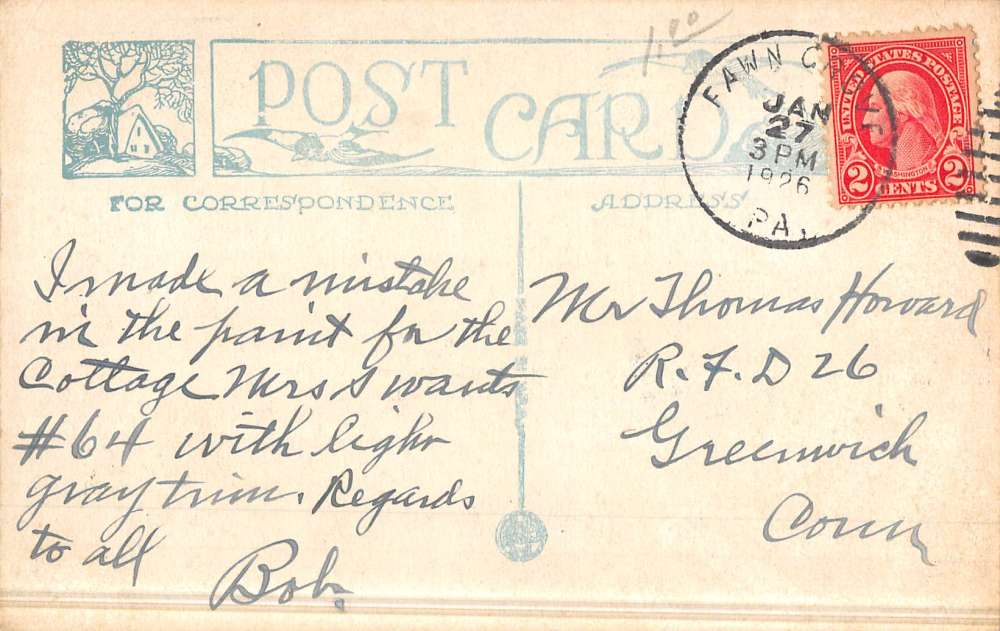 1.00
POST CARD
FAWN GROVE
JAN
27
3 PM
1926
PA.
UNITED STATES POSTAGE
WASHINGTON
2 CENTS 2
FOR CORRESPONDENCE
ADDRESS
I made a mistake
in the paint for the
Cottage Mrs S wants
#64 with light
gray trim. Regards
to all
Bob.
Mr Thomas Howard
R.F.D 26
Greenwich
Conn